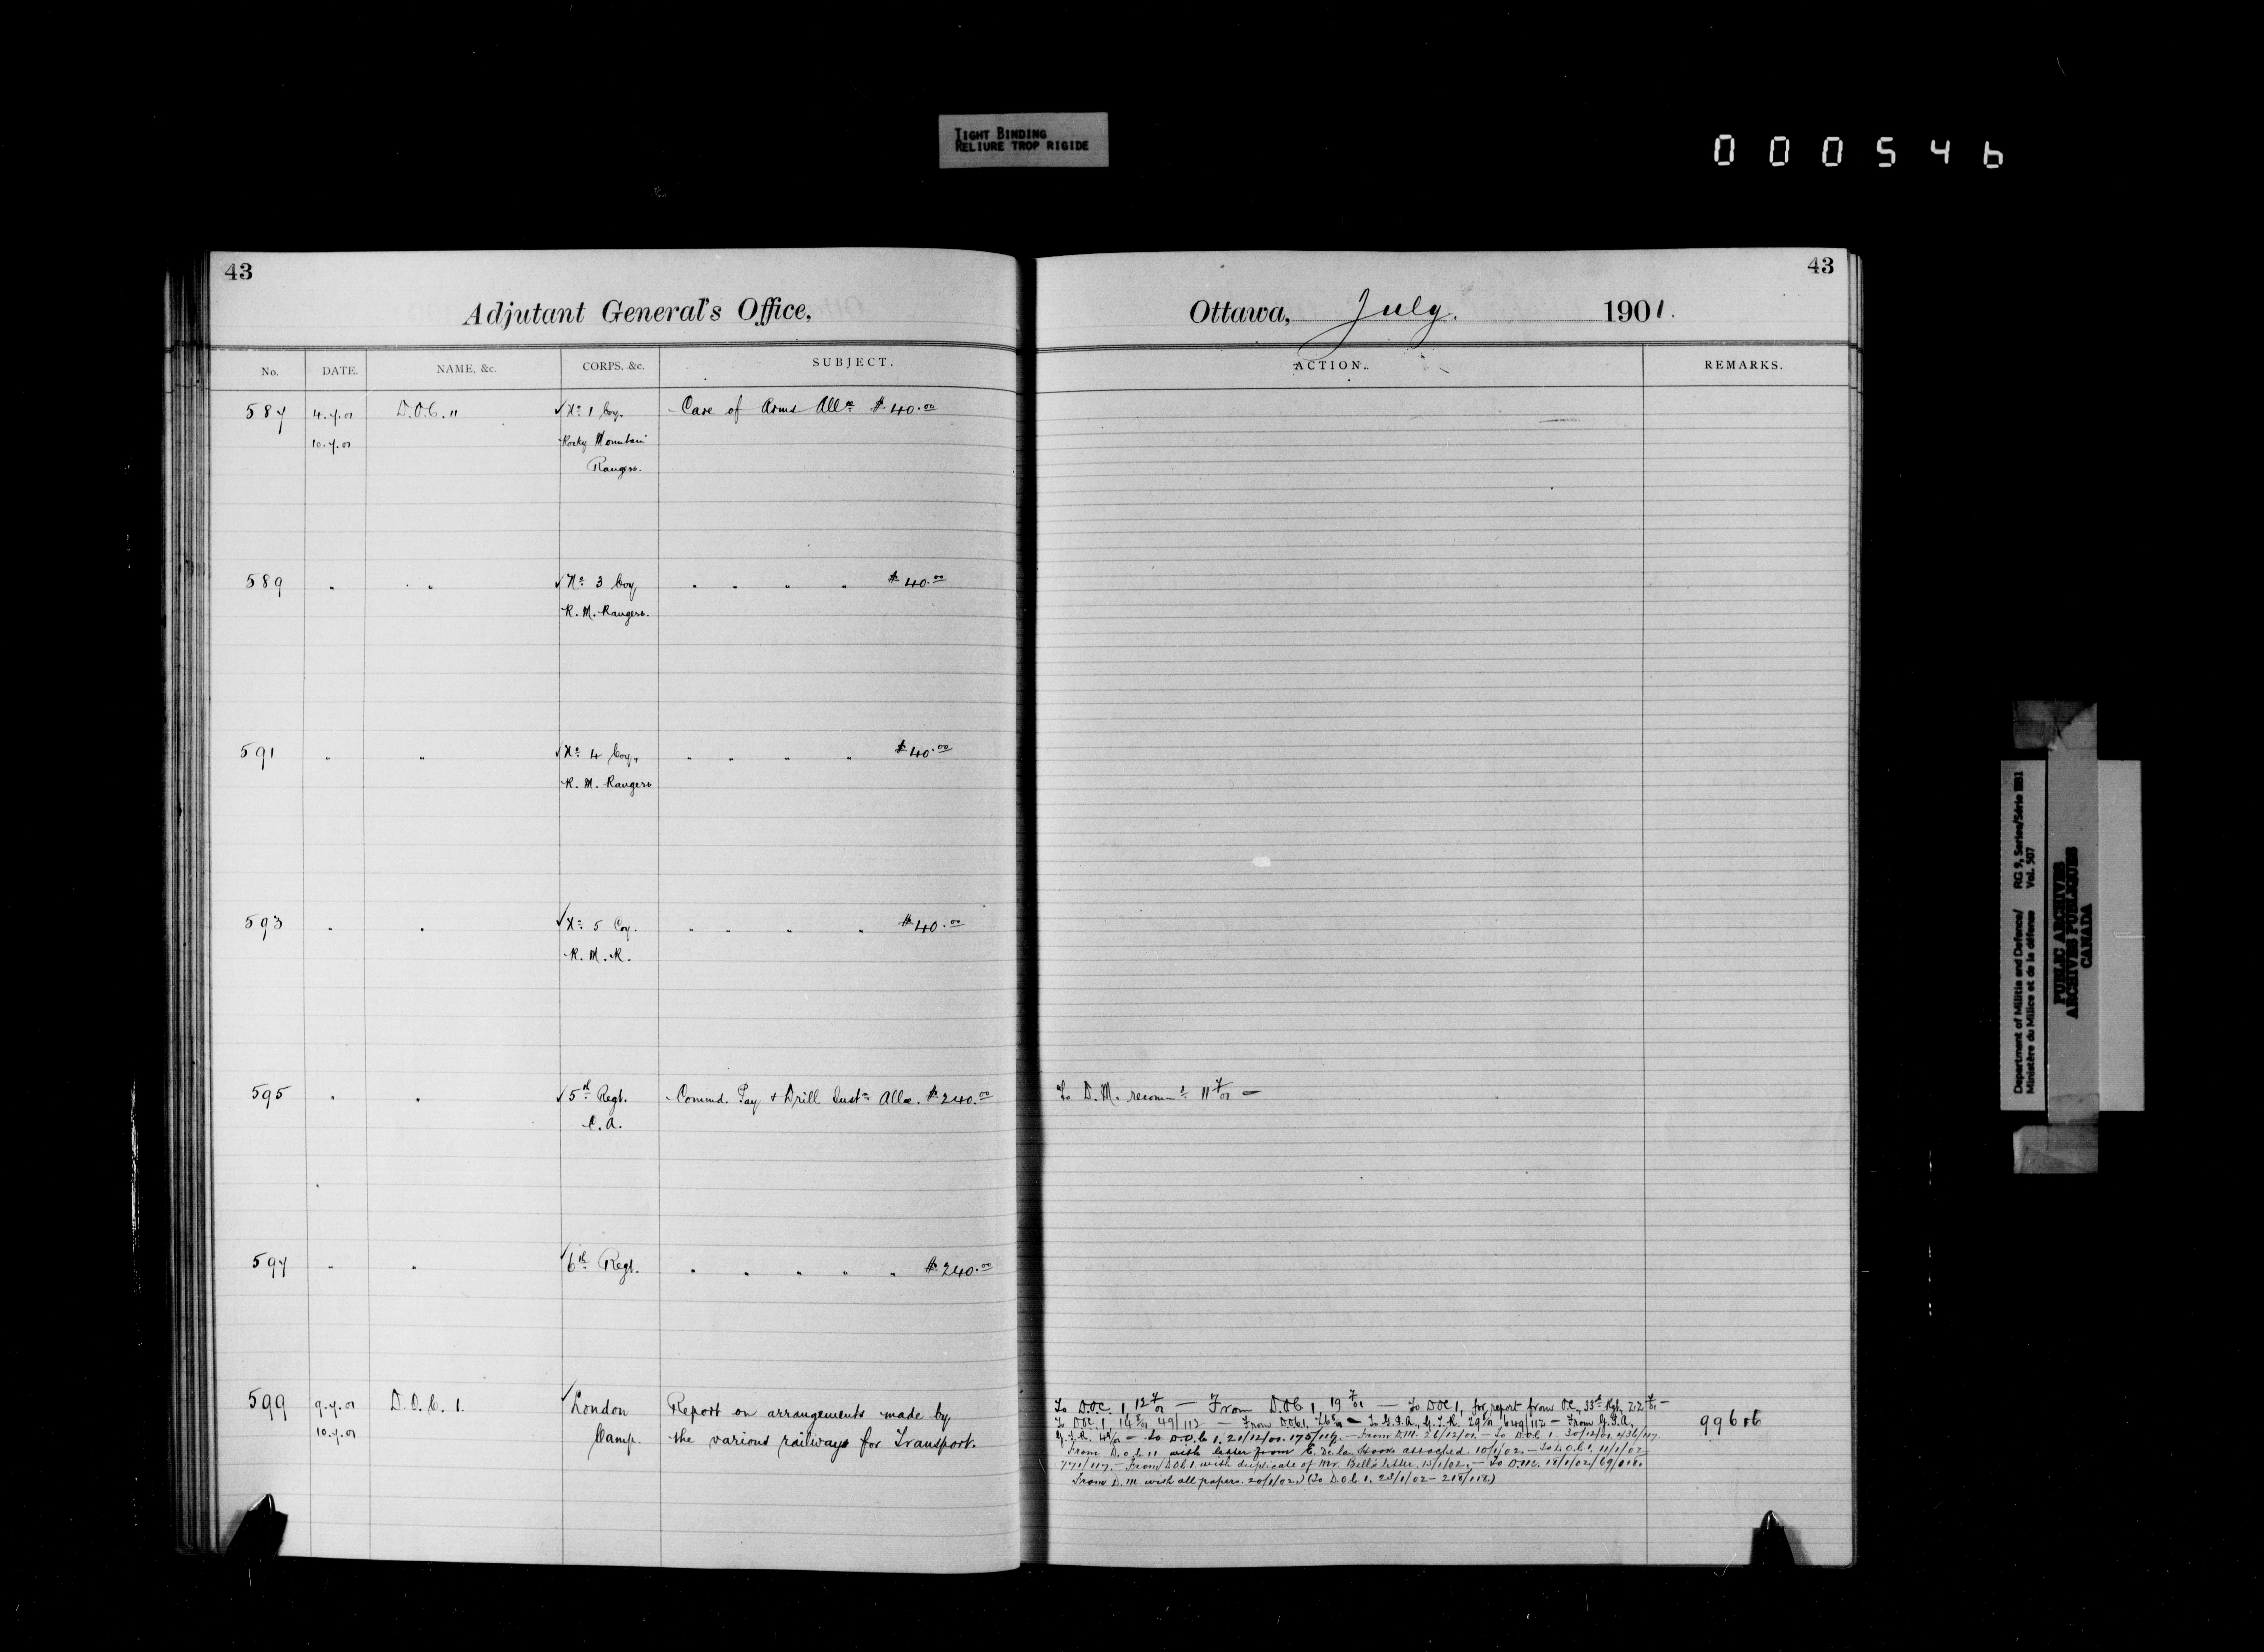 TIGHT BINDING
RELIURE TROP RIGIDE
000546
43
Adjutant General's Office,
No. DATE. NAME, &c. CORPS, &c. SUBJECT.
587 4.7.01 D.O.C. 11 √ No 1 Coy. Care of Arms Allce $40.00
10.7.01 Rocky Mountain
Rangers.
589 " " " √ No 3 Coy " " " " $40.00
R. M. Rangers.
591 " " √ No 4 Coy. " " " " $40.00
R. M. Rangers
593 " " √ No 5 Coy. " " " " $40.00
R. M. R.
595 " " √ 5th Regt. Commd. Pay & Drill Instn Allce. $240.00
C. A.
597 " " √ 6th Regt. " " " " " $240.00
599 9.7.01 D.O.C. 1. √ London Report on arrangements made by
10.7.01 Camp. the various railways for Transport.
43
Ottawa, July. 1901.
ACTION. REMARKS.
To D.M. recomd 11/7/01 —
To DOC. 1, 12/7/01 — From D.OC 1, 19/7/01 — To DOC 1, for report from OC, 33rd Rgt, 22/7/01 —
To DOC 1, 14/8/01 49/112 — From DOC 1, 26/8/01 — To G.F.A., G.T.R. 29/8/01 649/112 — From G.F.A. 99606
G.T.R. 4/9/01 — To D.O.C 1. 21/12/01. 175/117. — From D.M. 26/12/01. — To D.O.C. 1. 30/12/01 436/117.
From D.O.C. 11 with letter from E. De la Hooke attached. 10/1/02. — To D.O.C. 1. 11/1/02
771/117. — From D.OC. 1. with duplicate of Mr. Bell's letter. 15/1/02. — To D.M. 18/1/02/69/118.
From D. M with all papers. 20/1/02.) (To D.O.C. 1. 23/1/02 — 218/118.)
Department of Militia and Defence/ RG 9, Series/Série IIB1
Ministère du Milice et de la défense Vol. 507
PUBLIC ARCHIVES
ARCHIVES PUBLIQUES
CANADA